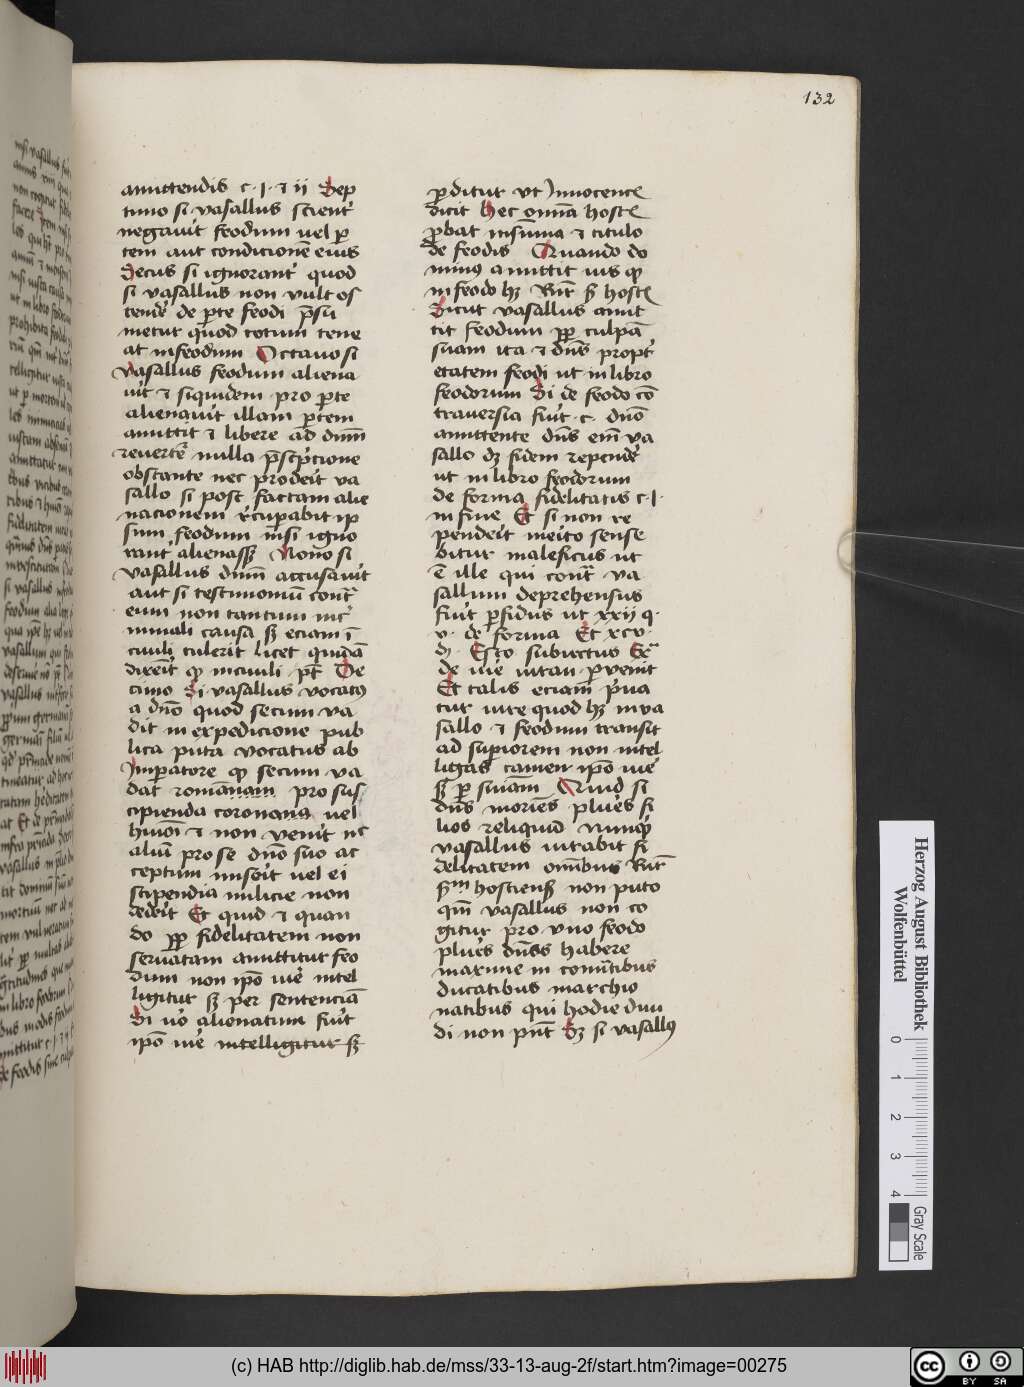 132
amittendis c · j · ⁊ ij Sep
timo si vasallus scient᷒
negauit feodum uel p̱
tem aut condicionē eius
Secus si ignorant᷒ quod
si vasallus non vult os
tend᷒e de p̱te feodi p̄su
metur quod totum tene
at infeodum Octauo si
vasallus feodum aliena
uit ⁊ siquidem pro p̱te
alienauit illam p̱tem
amittit ⁊ libere ad dnm̄
reuert᷒e nulla p̄sc̄pcione
obstante nec prodeit va
sallo si post factam alie
nacionem r᷒cupabit ip
sum feodum nisi igno
rant᷒ alienass Nono si
vasallus dnm̄ accusauit
aut si testimoniū cont᷒
eum non tantum in c᷒
minali causa sȝ eciam ī
ciuili tulerit licet quidā
dixeīt ꝙ inciuili p̄t De
cimo Si vasallus vocatꝰ
a dn̄o quod secum va
dit in expedicione pub
lica puta vocatus ab
Imp̱atore ꝙ secum va
dat romānam pro sus
cipienda coronana uel
huiōi ⁊ non venit n᷒c
aliū pro se dn̄o suo ac
ceptum miserit uel ei
stipendia milicie non
dedeit Et quid ⁊ quan
do ꝓp̱ fidelitatem non
seruatam amittitur feo
dum non ip̄o iur᷒e intel
ligitur sȝ per sentenciā
Si u᷒o alienatum fuit
ip̄o iure intelligitur sȝ
p̱ditur vt Innocenc᷒
dicit Hec omīa host᷒
p̱bat in sūma ⁊ titulo
de feodis Quando do
minꝰ amittit ius ꝙ
in feodo hȝ Rn̄t f᷒ host᷒
dicut vasallus amit
tit feodum ꝓp̱ culpā
suam ita ⁊ dn̄s propt᷒
etatem feodi ut in libro
feodorum Si de feodo cō
trauersia fuit c · dn̄o
amittente dn̄s em̄ va
sallo dȝ fidem repend᷒e
ut in libro feodorum
de forma fidelitatis c · j ·
in fine Et si non re
pendeīt meīto sense
bitur maleficus ut
ē ille qui cont᷒a va
sallum deprehensus
fuit p̱fidus ut xxij q ·
v · de forma Et xcv ·
d᷒ · Esto subiectus Ex᷒a
de iure iuran p̱uenit
Et talis eciam p̄ua
tur iure quod hȝ in va
sallo ⁊ feodum transit
ad sup̱iorem non intel
ligas tamen ip̄o iur᷒e
sȝ p̱ sn̄iam Quid si
dn̄s moriēs plures fi
lios reliquid Nunqd᷒
vasallus iurabit fi
delitatem om̄ibus Rn̄t
f᷒m hostiens non puto
qm̄ vasallus non co
gitur pro vno feodo
plures dn̄os habere
maxime in comitibus
ducatibus marchio
natibus qui hodie diui
di non pn̄t Sȝ si vasallꝰ
Herzog August Bibliothek
Wolfenbüttel
0 1 2 3 4
Gray Scale
(c) HAB http://diglib.hab.de/mss/33-13-aug-2f/start.htm?image=00275
cc BY SA